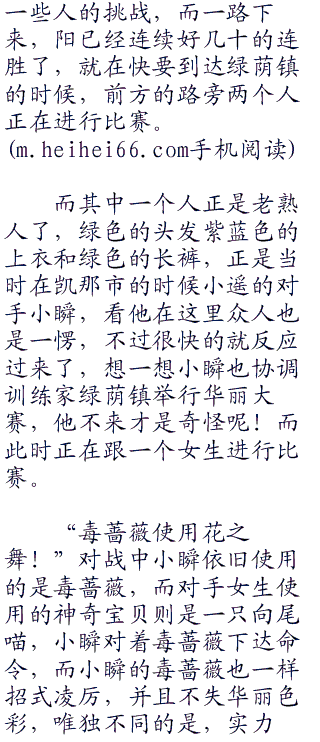 一些人的挑战，而一路下
来，阳已经连续好几十的连
胜了，就在快要到达绿荫镇
的时候，前方的路旁两个人
正在进行比赛。
(m.heihei66.com手机阅读)
而其中一个人正是老熟
人了，绿色的头发紫蓝色的
上衣和绿色的长裤，正是当
时在凯那市的时候小遥的对
手小瞬，看他在这里众人也
是一愣，不过很快的就反应
过来了，想一想小瞬也协调
训练家绿荫镇举行华丽大
赛，他不来才是奇怪呢！而
此时正在跟一个女生进行比
赛。
“毒蔷薇使用花之
舞！”对战中小瞬依旧使用
的是毒蔷薇，而对手女生使
用的神奇宝贝则是一只向尾
喵，小瞬对着毒蔷薇下达命
令，而小瞬的毒蔷薇也一样
招式凌厉，并且不失华丽色
彩，唯独不同的是，实力